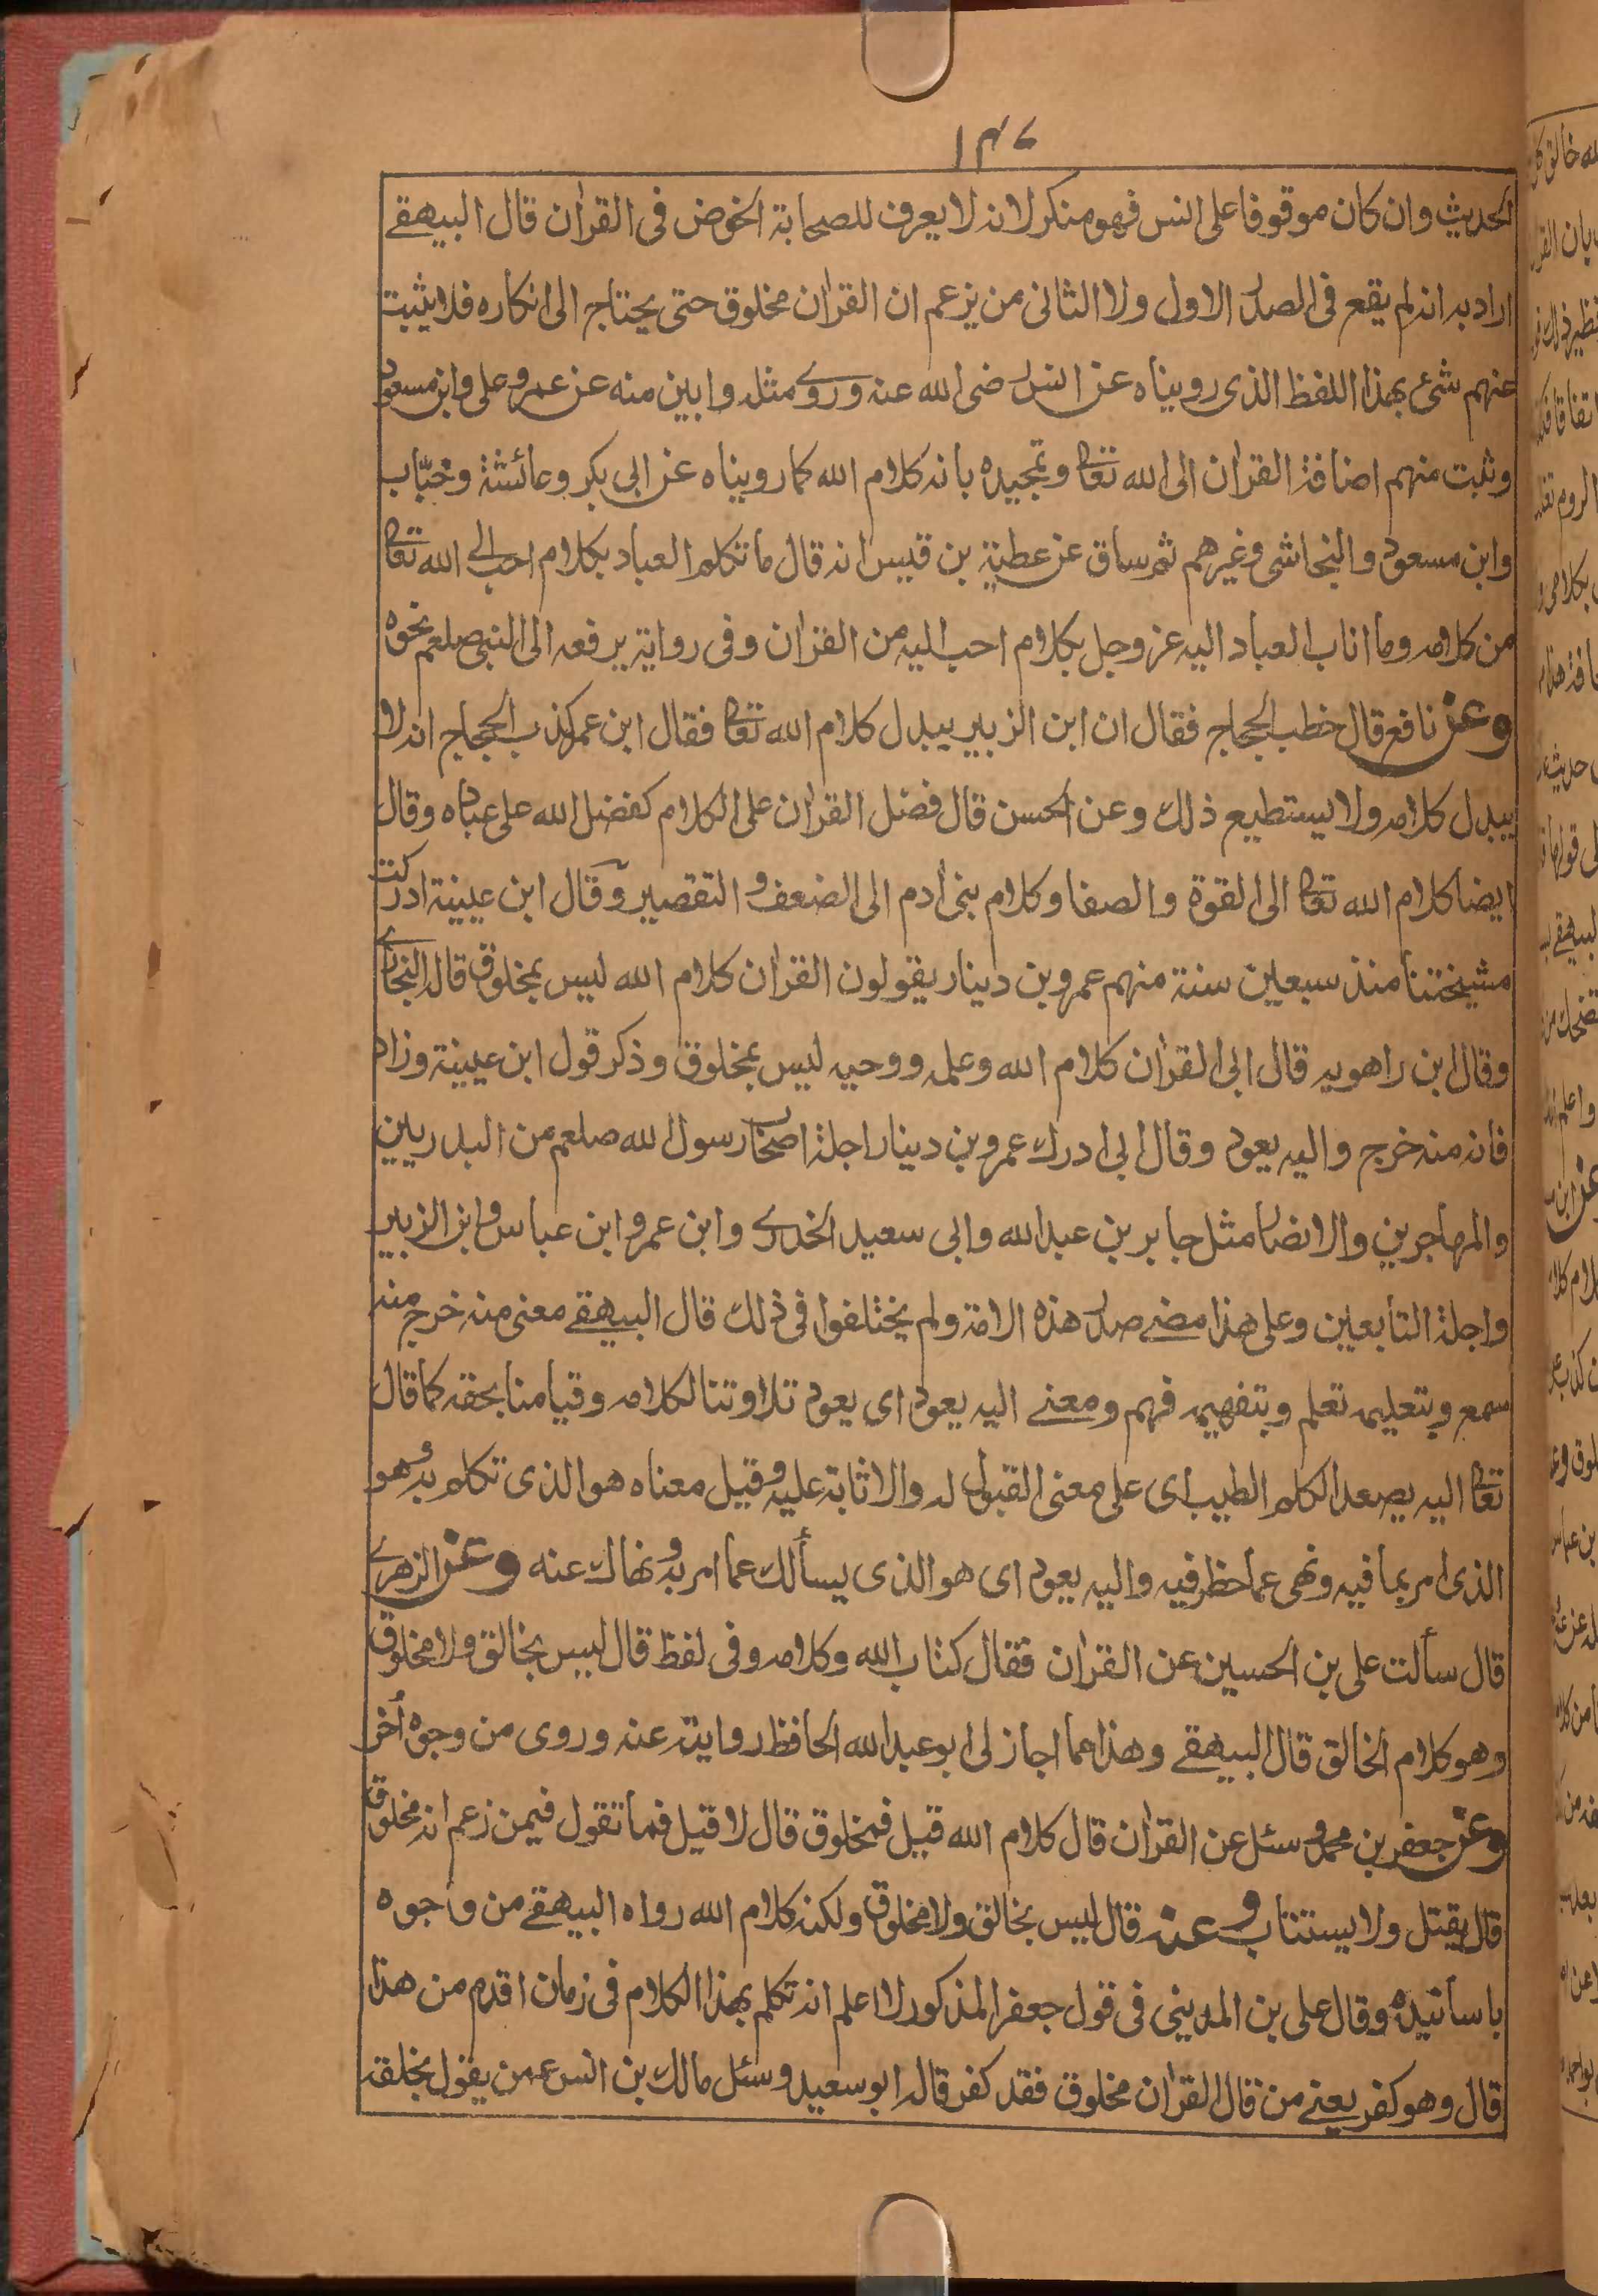 ١٣٧
الحديث وان كان موقوفا على انس فهو منكر لانه لا يعرف للصحابة الخوض فى القراٰن قال البيهقے
اراد به انه لم يقع فى الصدر الاول ولا الثانى من يزعم ان القراٰن مخلوق حتى يحتاج الى انكاره فلا يثبت
عنهم شئ بهذا اللفظ الذى رويناه عن انس رضى الله عنه وروے مثله وابين منه عن عمر وعلى وابن مسعود
وثبت منهم اضافة القراٰن الى الله تعالى وتمجيده بانه كلام الله كما رويناه عن ابى بكر وعائشة وخبّاب
وابن مسعود والنجاشى وغيرهم ثم ساق عن عطية بن قيس انه قال ما تكلم العباد بكلام احب الے الله تعالى
من كلامه وما اناب العباد اليه عز وجل بكلام احب اليه من القراٰن وفى رواية يرفعه الى النبى صلعم نحوه
وعن نافع قال خطب الحجاج فقال ان ابن الزبير يبدل كلام الله تعالى فقال ابن عمر كذب الحجاج انه لا
يبدل كلامه ولا يستطيع ذلك وعن الحسن قال فضل القراٰن على الكلام كفضل الله على عباده وقال
ايضا كلام الله تعالى الى القوة والصفا وكلام بنى اٰدم الى الضعف والتقصير وقال ابن عيينة ادركت
مشيختنا منذ سبعين سنة منهم عمرو بن دينار يقولون القراٰن كلام الله ليس بمخلوق قاله البخارے
وقال ابن راهويه قال ابى القراٰن كلام الله وعلمه ووحيه ليس بمخلوق وذكر قول ابن عيينة وزاد
فانه منه خرج واليه يعود وقال ابى ادرك عمرو بن دينار اجلة اصحاب رسول الله صلعم من البدريين
والمهاجرين والانصار مثل جابر بن عبد الله وابى سعيد الخدرے وابن عمر وابن عباس وابن الزبير
واجلة التابعين وعلى هذا مضے صدر هذه الامة ولم يختلفوا فى ذلك قال البيهقے معنى منه خرج منه
سمع وبتعليمه تعلم وبتفهيمه فهم ومعنے اليه يعود اى يعود تلاوتنا لكلامه وقيامنا بحقه كما قال
تعالى اليه يصعد الكلم الطيب اى على معنى القبول له والاثابة عليه وقيل معناه هو الذى تكلم به وهو
الذى امر بما فيه ونهى عما حظر فيه واليه يعود اى هو الذى يسألك عما امر به ونهاك عنه وعن الزهرے
قال سألت على بن الحسين عن القراٰن فقال كتاب الله وكلامه وفى لفظ قال ليس بخالق ولا مخلوق
وهو كلام الخالق قال البيهقے وهذا عما اجاز لى ابو عبد الله الحافظ روايته عنه وروى من وجوه اُخر
وعن جعفر بن محمد وسئل عن القراٰن قال كلام الله قيل فمخلوق قال لا قيل فما تقول فيمن زعم انه مخلوق
قال يقتل ولا يستتاب وعنه قال ليس بخالق ولا مخلوق ولكنه كلام الله رواه البيهقے من وجوه
باسانيده وقال على بن المدينى فى قول جعفر المذكور لا اعلم انه تكلم بهذا الكلام فى زمان اقدم من هذا
قال وهو كفر يعنے من قال القراٰن مخلوق فقد كفر قاله ابو سعيد وسئل مالك بن انس عمن يقول بخلق